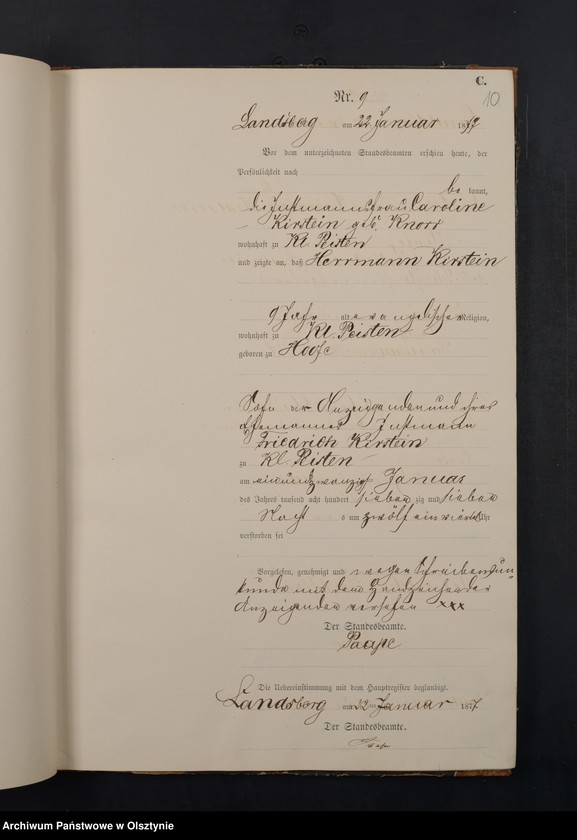 C.
10
Nr. 9
Landsberg am 22 Januar 1877
Vor dem unterzeichneten Standesbeamten erschien heute, der
Persönlichkeit nach
be kannt,
die Instmannsfrau Caroline
Kirstein geb. Knorr
wohnhaft zu Kl. Peisten
und zeigte an, daß Herrmann Kirstein
9 Jahr alt evangelischer Religion,
wohnhaft zu Kl. Peisten
geboren zu Hoofe
Sohn der Anzeigenden und ihres
Ehemannes Instmann
Friedrich Kirstein
zu Kl. Peisten
am einundzwanzigsten Januar
des Jahres tausend acht hundert sieben zig und sieben
Nachts um zwölf einviertel Uhr
verstorben sei
Vorgelesen, genehmigt und wegen Schreibensun-
kunde mit dem Handzeichen der
Anzeigenden versehen xxx
Der Standesbeamte.
Paape
Die Uebereinstimmung mit dem Hauptregister beglaubigt.
Landsberg am 22ten Januar 1877.
Der Standesbeamte.
Archiwum Państwowe w Olsztynie